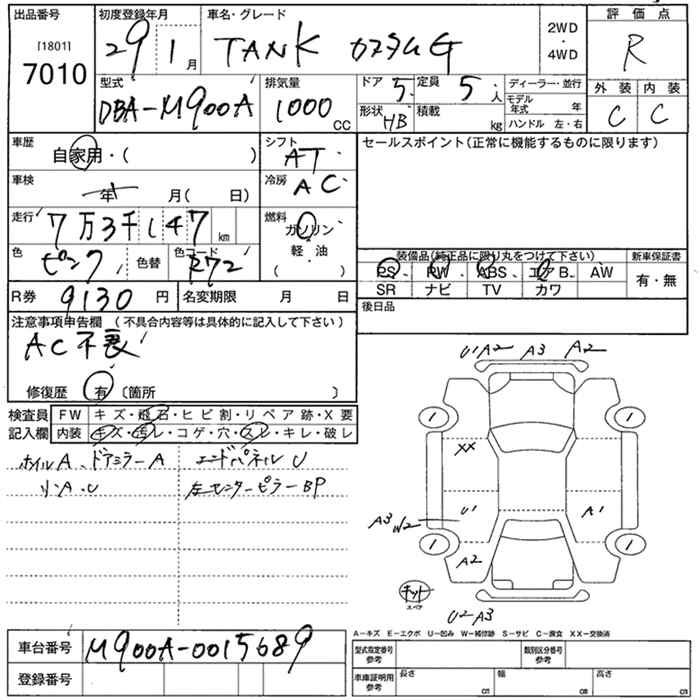 出品番号 初度登録年月 車名・グレード 2WD・4WD 評価点
[1801] 7010
29 1月 TANK カスタムG R
外装 内装
C C
型式 排気量 ドア 5 定員 5人 ディーラー・並行
DBA-M900A 1000cc 形状 HB 積載 kg モデル年式 年
ハンドル 左・右
車歴 自家用・( ) シフト AT セールスポイント(正常に機能するものに限ります)
車検 年 月( 日) 冷房 AC
走行 7万3千147km 燃料 ガソリン・軽・油( )
色 ピンク 色替 色コード R72
装備品(純正品に限り丸をつけて下さい) 新車保証書
PS、PW、ABS、エアB、AW 有・無
SR ナビ TV カワ
R券 9130円 名変期限 月 日 後日品
注意事項申告欄 (不具合内容等は具体的に記入して下さい)
AC不良
修復歴 有 〔箇所 〕
検査員 FW キズ・飛石・ヒビ割・リペア跡・X要
記入欄 内装 キズ・汚レ・コゲ・穴・スレ・キレ・破レ
ホイルA、ドアミラーA エンドパネルU
リ・A・U 左センターピラーBP
U1 A2 A3 A2
1 1
XX
A3 W2 U1 A1
1 1
A2
キット
スペア
U2-A3
A-キズ E-エクボ U-凹み W-補修跡 S-サビ C-腐食 XX-交換済
車台番号 M900A-0015689
登録番号
型式指定番号 参考 類別区分番号 参考
車庫証明用 参考 長さ cm 幅 cm 高さ cm